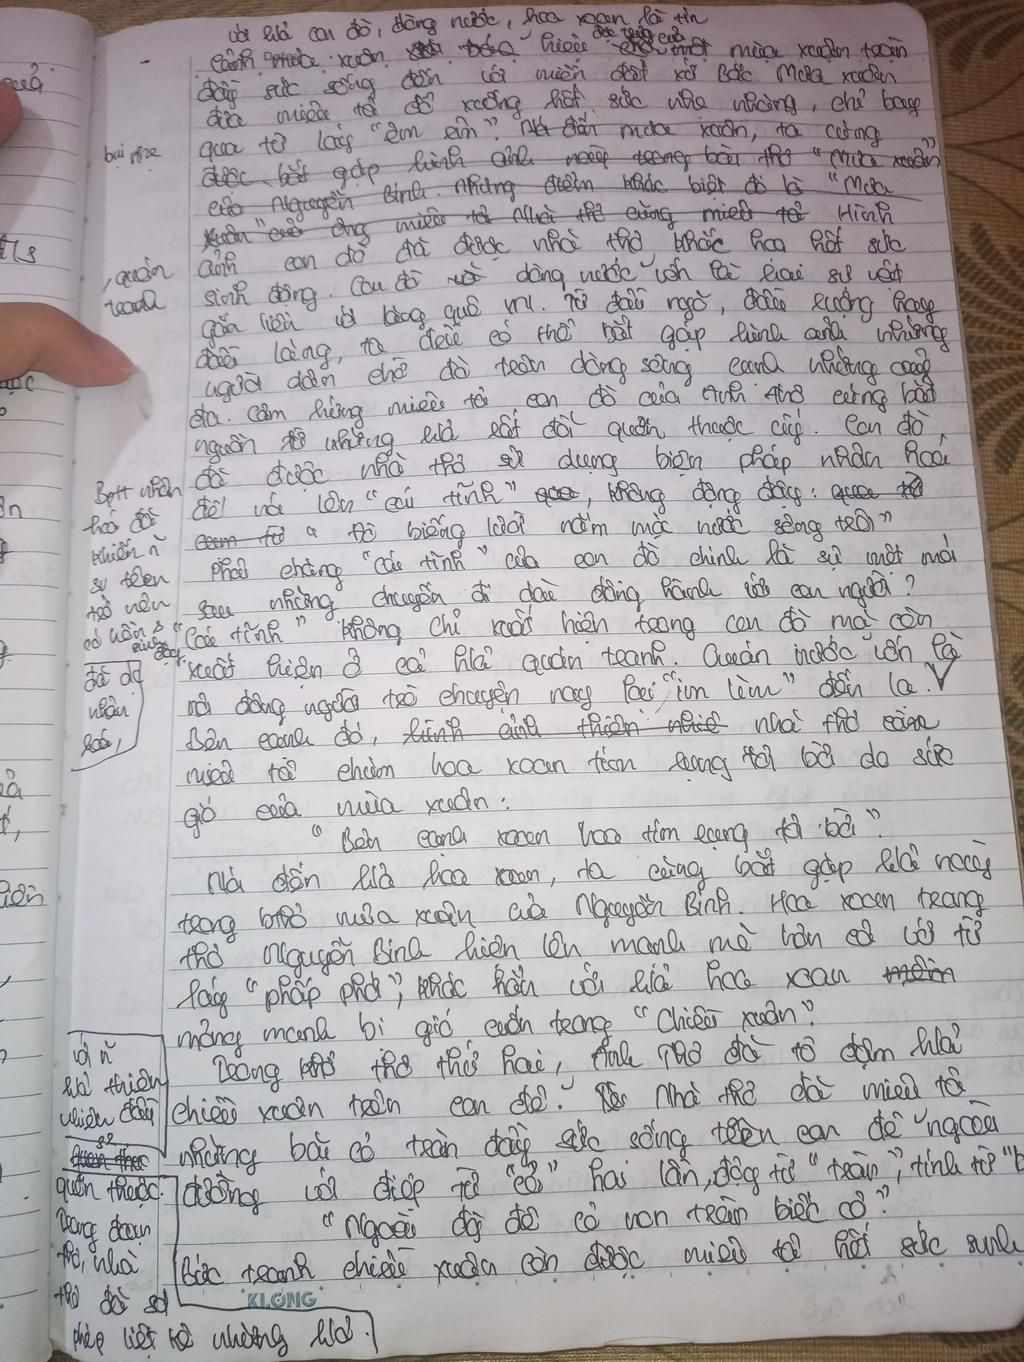 với h/ả con đò, dòng nước, hoa xoan là tín
cảnh mưa xuân hiện mùa xuân tràn
đầy sức sống đến với miền đất xứ Bắc. Mưa xuân
được miêu tả đổ xuống hết sức nhẹ nhàng, chỉ bay
bụi nhẹ
qua từ láy "êm êm". Nó đến mưa xuân, ta cũng
được bắt gặp hình ảnh này trong bài thơ "Mưa xuân"
của Nguyễn Bính. Nhưng điểm khác biệt đó là "Mưa
xuân" của ông miêu tả Nhà thơ cũng miêu tả Hình
, quán tranh
ảnh con đò đã được nhà thơ khắc họa hết sức
sinh động. Con đò và dòng nước vốn là hai sự vật
gắn liền với làng quê VN. Từ đầu ngõ, đầu xường hay
đầu làng, ta đều có thể bắt gặp hình ảnh những
người dân chở đò trên dòng sông cạnh những cây
đa. Cảm hứng miêu tả con đò của Anh Thơ cũng bắt
nguồn từ những h/ả rất đỗi quen thuộc ấy. Con đò
đã được nhà thơ sử dụng biện pháp nhân hoá
để nói lên "cái tĩnh" qua, không động đậy: qua từ
cụm từ "Đò biếng lười nằm mặc nước sông trôi"
Phải chăng "cái tĩnh" của con đò chính là sự mệt mỏi
sau những chuyến đi dài đồng hành với con người?
"Cái tĩnh" không chỉ xuất hiện trong con đò mà còn
xuất hiện ở cả h/ả quán tranh. Quán nước vốn là
nơi đông người trò chuyện nay lại "im lìm" đến lạ. V
Bptt nhân
hoá đã
khiến n~
sự trên
trở nên
có hồn &
sinh động
đã đc
nhân
hoá,
Bên cạnh đó, hình ảnh thiên nhiê nhà thơ còn
miêu tả chòm hoa xoan tím rụng tơi bời do sức
gió của mùa xuân:
"Bên cạnh xoan hoa tím rụng tơi bời".
Nói đến h/ả hoa xoan, ta cũng bắt gặp h/ả này
trong bthơ mưa xuân của Nguyễn Bính. Hoa xoan trong
thơ Nguyễn Bính hiện lên mạnh mẽ hơn cả với từ
láy "phấp phới", khác hẳn với h/ả hoa xoan mềm
mỏng manh bị gió cuốn trong "Chiều xuân".
Trong khổ thơ thứ hai, Anh Thơ đã tô đậm h/ả
chiều xuân trên con đê. Nhà thơ đã miêu tả
những bãi cỏ tràn đầy sức sống trên con đê ngoài
đường với điệp từ "cỏ" hai lần, động từ "tràn", tính từ "b
"Ngoài đg đê cỏ non tràn biếc cỏ".
Bức tranh chiều xuân còn được miêu tả hết sức sinh
với n~
h/ả thiên
nhiên đầy
quen thuộc.
Trong đoạn
thơ, nhà
thơ đã sd
phép liệt kê những h/ả.
KLONG